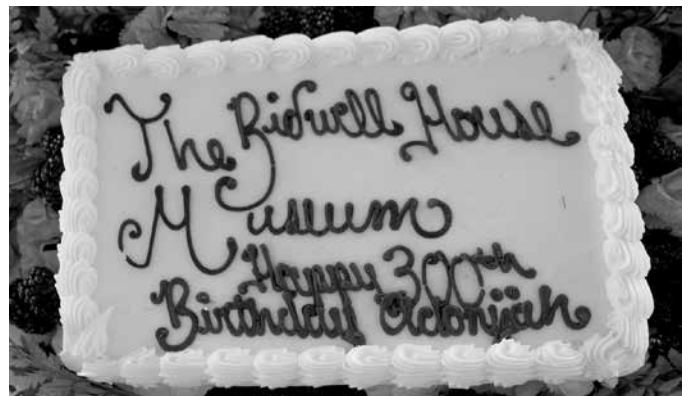 The Bidwell House
Museum
Happy 300th
Birthday Adonijah